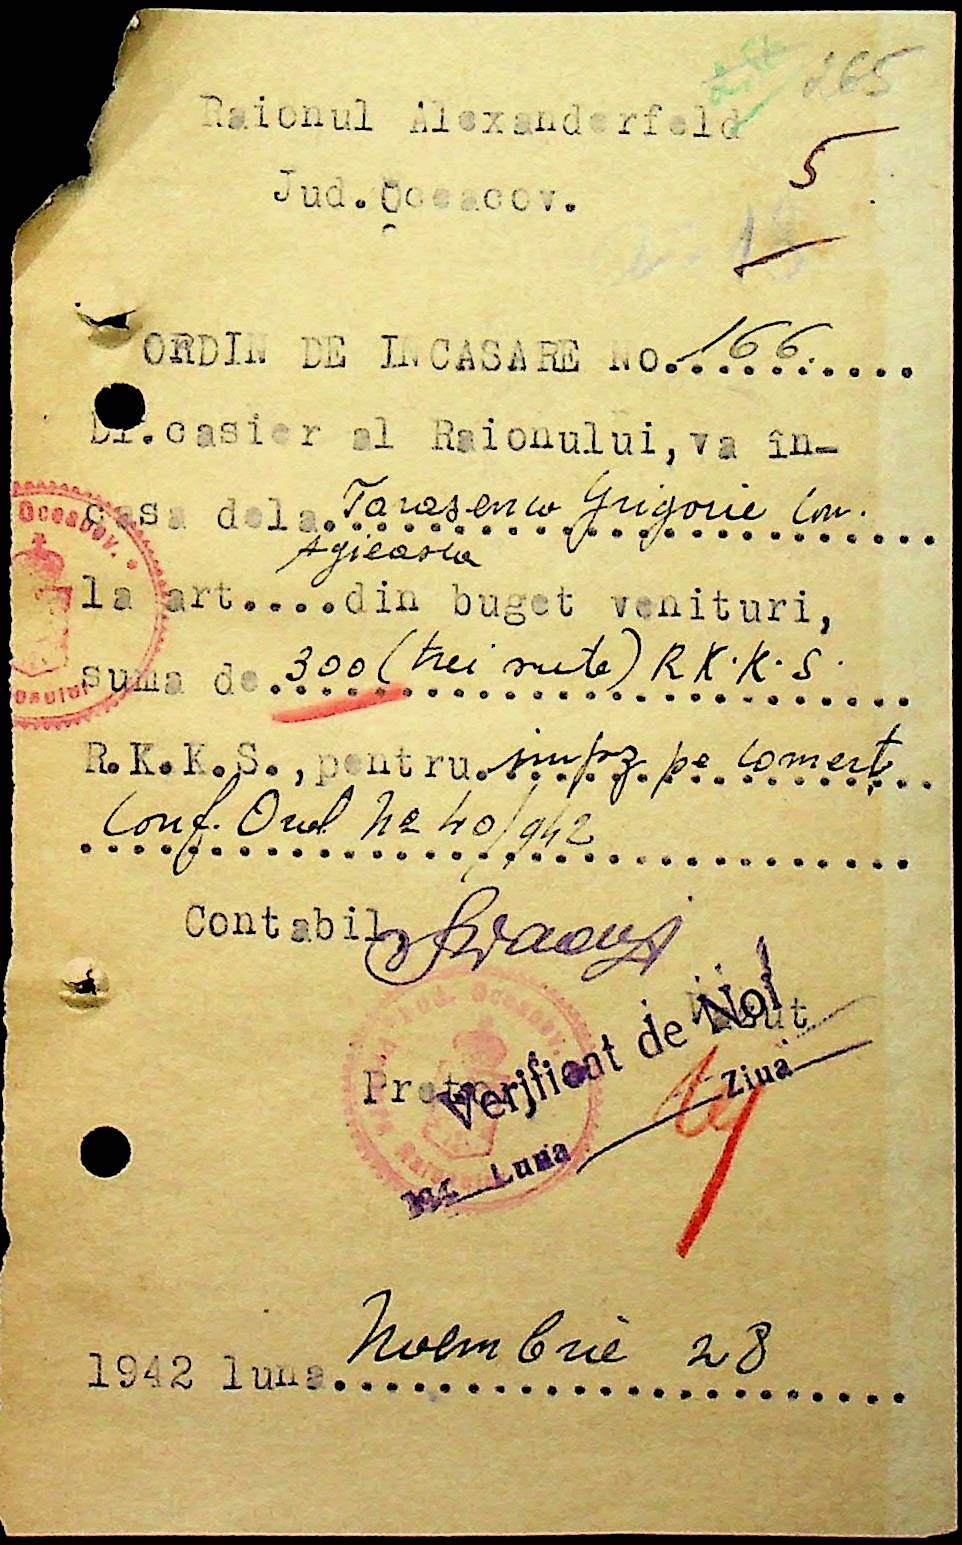 265
Raionul Alexanderfeld
5
Jud.Oceacov.
ORDIN DE INCASARE No.166
Dl.casier al Raionului,va în-
casa dela Tarasenco Grigorie Com.
la art....din buget venituri,
suma de 300 (trei sute) R.K.K.S.
R.K.K.S.,pentru impz pe comerț
Conf. Ord No 40/942
Contabil,
Vazut
Pretor
Verificat de Noi
Luna Ziua
1942 luna Noembrie 28